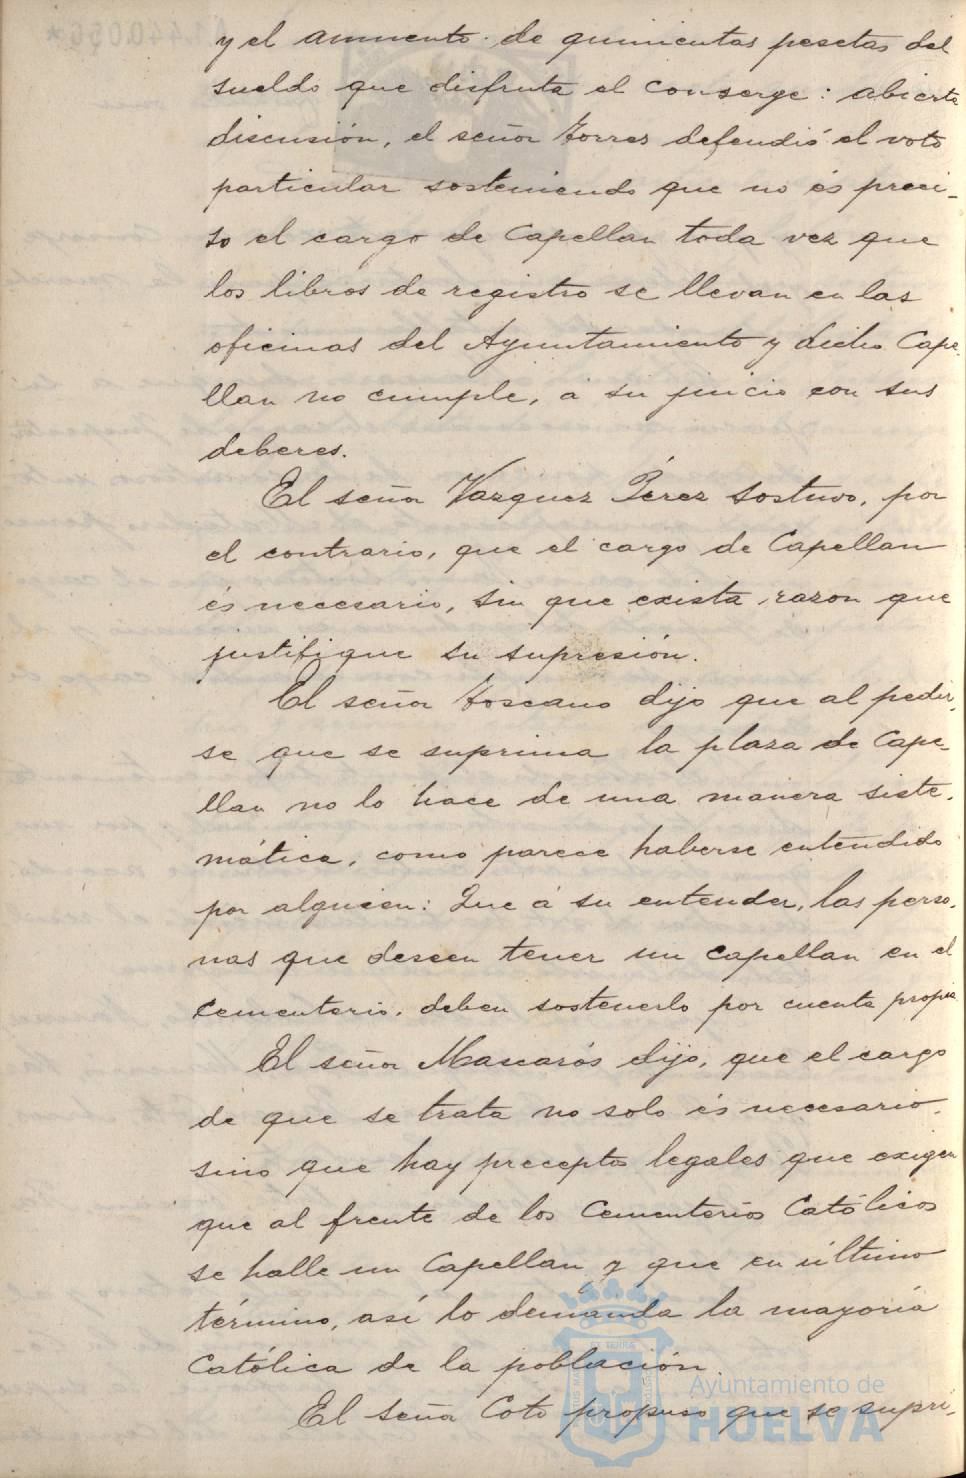 y el aumento de quinientas pesetas del
sueldo que disfruta el conserge: abierta
discusión, el señor Torres defendió el voto
particular sosteniendo que no és preci-
so el cargo de Capellan toda vez que
los libros de registro se llevan en las
oficinas del Ayuntamiento y dicho Cape-
llan no cumple, á su juicio con sus
deberes.
El señor Vazquez Pérez sostuvo, por
el contrario, que el cargo de Capellan
és necesario, sin que exista razon que
justifique su supresión.
El señor Toscano dijo que al pedir-
se que se suprima la plaza de Cape-
llan no lo hace de una manera siste-
mática, como parece haberse entendido
por alguien: Que á su entender, las perso-
nas que deseen tener un capellan en el
cementerio, deben sostenerlo por cuenta propia
El señor Mascarós dijo, que el cargo
de que se trata no solo és necesario,
sino que hay preceptos legales que exigen
que al frente de los Cementerios Católicos
se halle un Capellan y que en último
término, así lo demanda la mayoría
Católica de la población.
El señor Coto propuso que se supri-
Ayuntamiento de
HUELVA